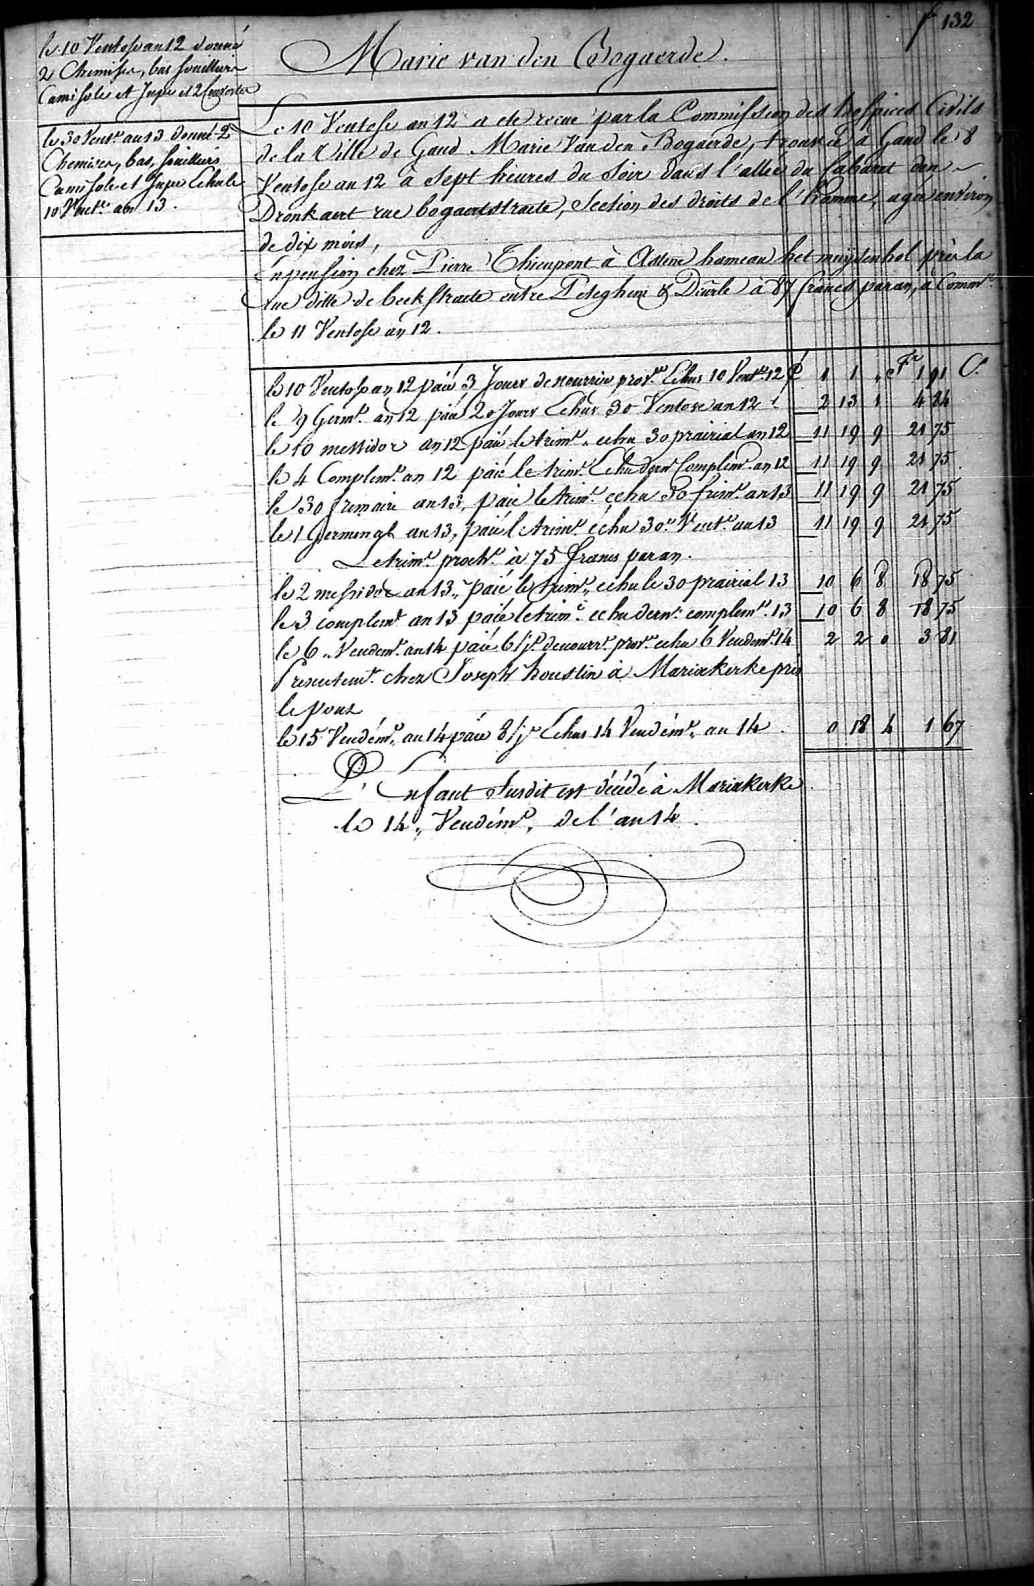 f 132
le 10 Ventose an 12 donné
2 Chemises, bas souilliers
Camisole et Jupe et 2
le 30 Vent.e an 13 donné 2
Chemises, bas, souilliers
Camisole et Jupe Echu le
10 Vent.e an 13.
Marie van den Bogaerde.
Le 10 Ventose an 12 a eté recue par la Commission des hospices Civils
de la Ville de Gand Marie Van den Bogaerde, trouvée à Gand le 8
Ventose an 12 à Sept heures du Soir dans l'allée du Cabaret den
Dronkaert rue bogaertstraete, Section des droits de l'homme, agée environ
de dix mois,
En pension chez Pierre Thienpont à Astene hameau het muysenhol près la
rue ditte de beekstraete entre Peteghem & Deurle à 87 francs par an, à Comm.r
le 11 Ventose an 12.
Fr C.s
le 10 Ventose an 12 paié 3 Jours de nourrice prov.re Echus 10 Vent.e 12 £ 1 1 " 1 91
le 9 Germ.l an 12 paié 20 Jours Echus 30 Ventose an 12 2 13 1 4 84
le 10 messidor an 12 paié le trim.e echu 30 prairial an 12 11 19 9 21 75
le 4 Complem.re an 12 paié le trim.e Echu dern.r Complem.re an 12 11 19 9 21 75
le 30 frimaire an 13, paié le trim.e echu 30 frim.e an 13 11 19 9 21 75
le 1 Germinal an 13, paié le trim.e échu 30 Vent.e an 13 11 19 9 21 75
Le trim.e proch.n à 75 francs par an.
le 2 messidor an 13, paié le trim.e echu le 30 prairial 13 10 6 8 18 75
le 3 complem.re an 13 paié le trim.e echu dern.r complem.re 13 10 6 8 18 75
le 6 Vendem.re an 14 paié 6 j.rs de nourr.e prov.re echu 6 Vendem.re 14 2 2 0 3 81
Presentem.t chez Joseph houstin à Mariakerke près
le pont
le 15 Vendém.re an 14 paié 8 j.rs Echus 14 Vendém.re an 14 0 18 4 1 67
L'Enfant Susdit est décédé à Mariakerke
le 14, Vendém.re, de l'an 14.